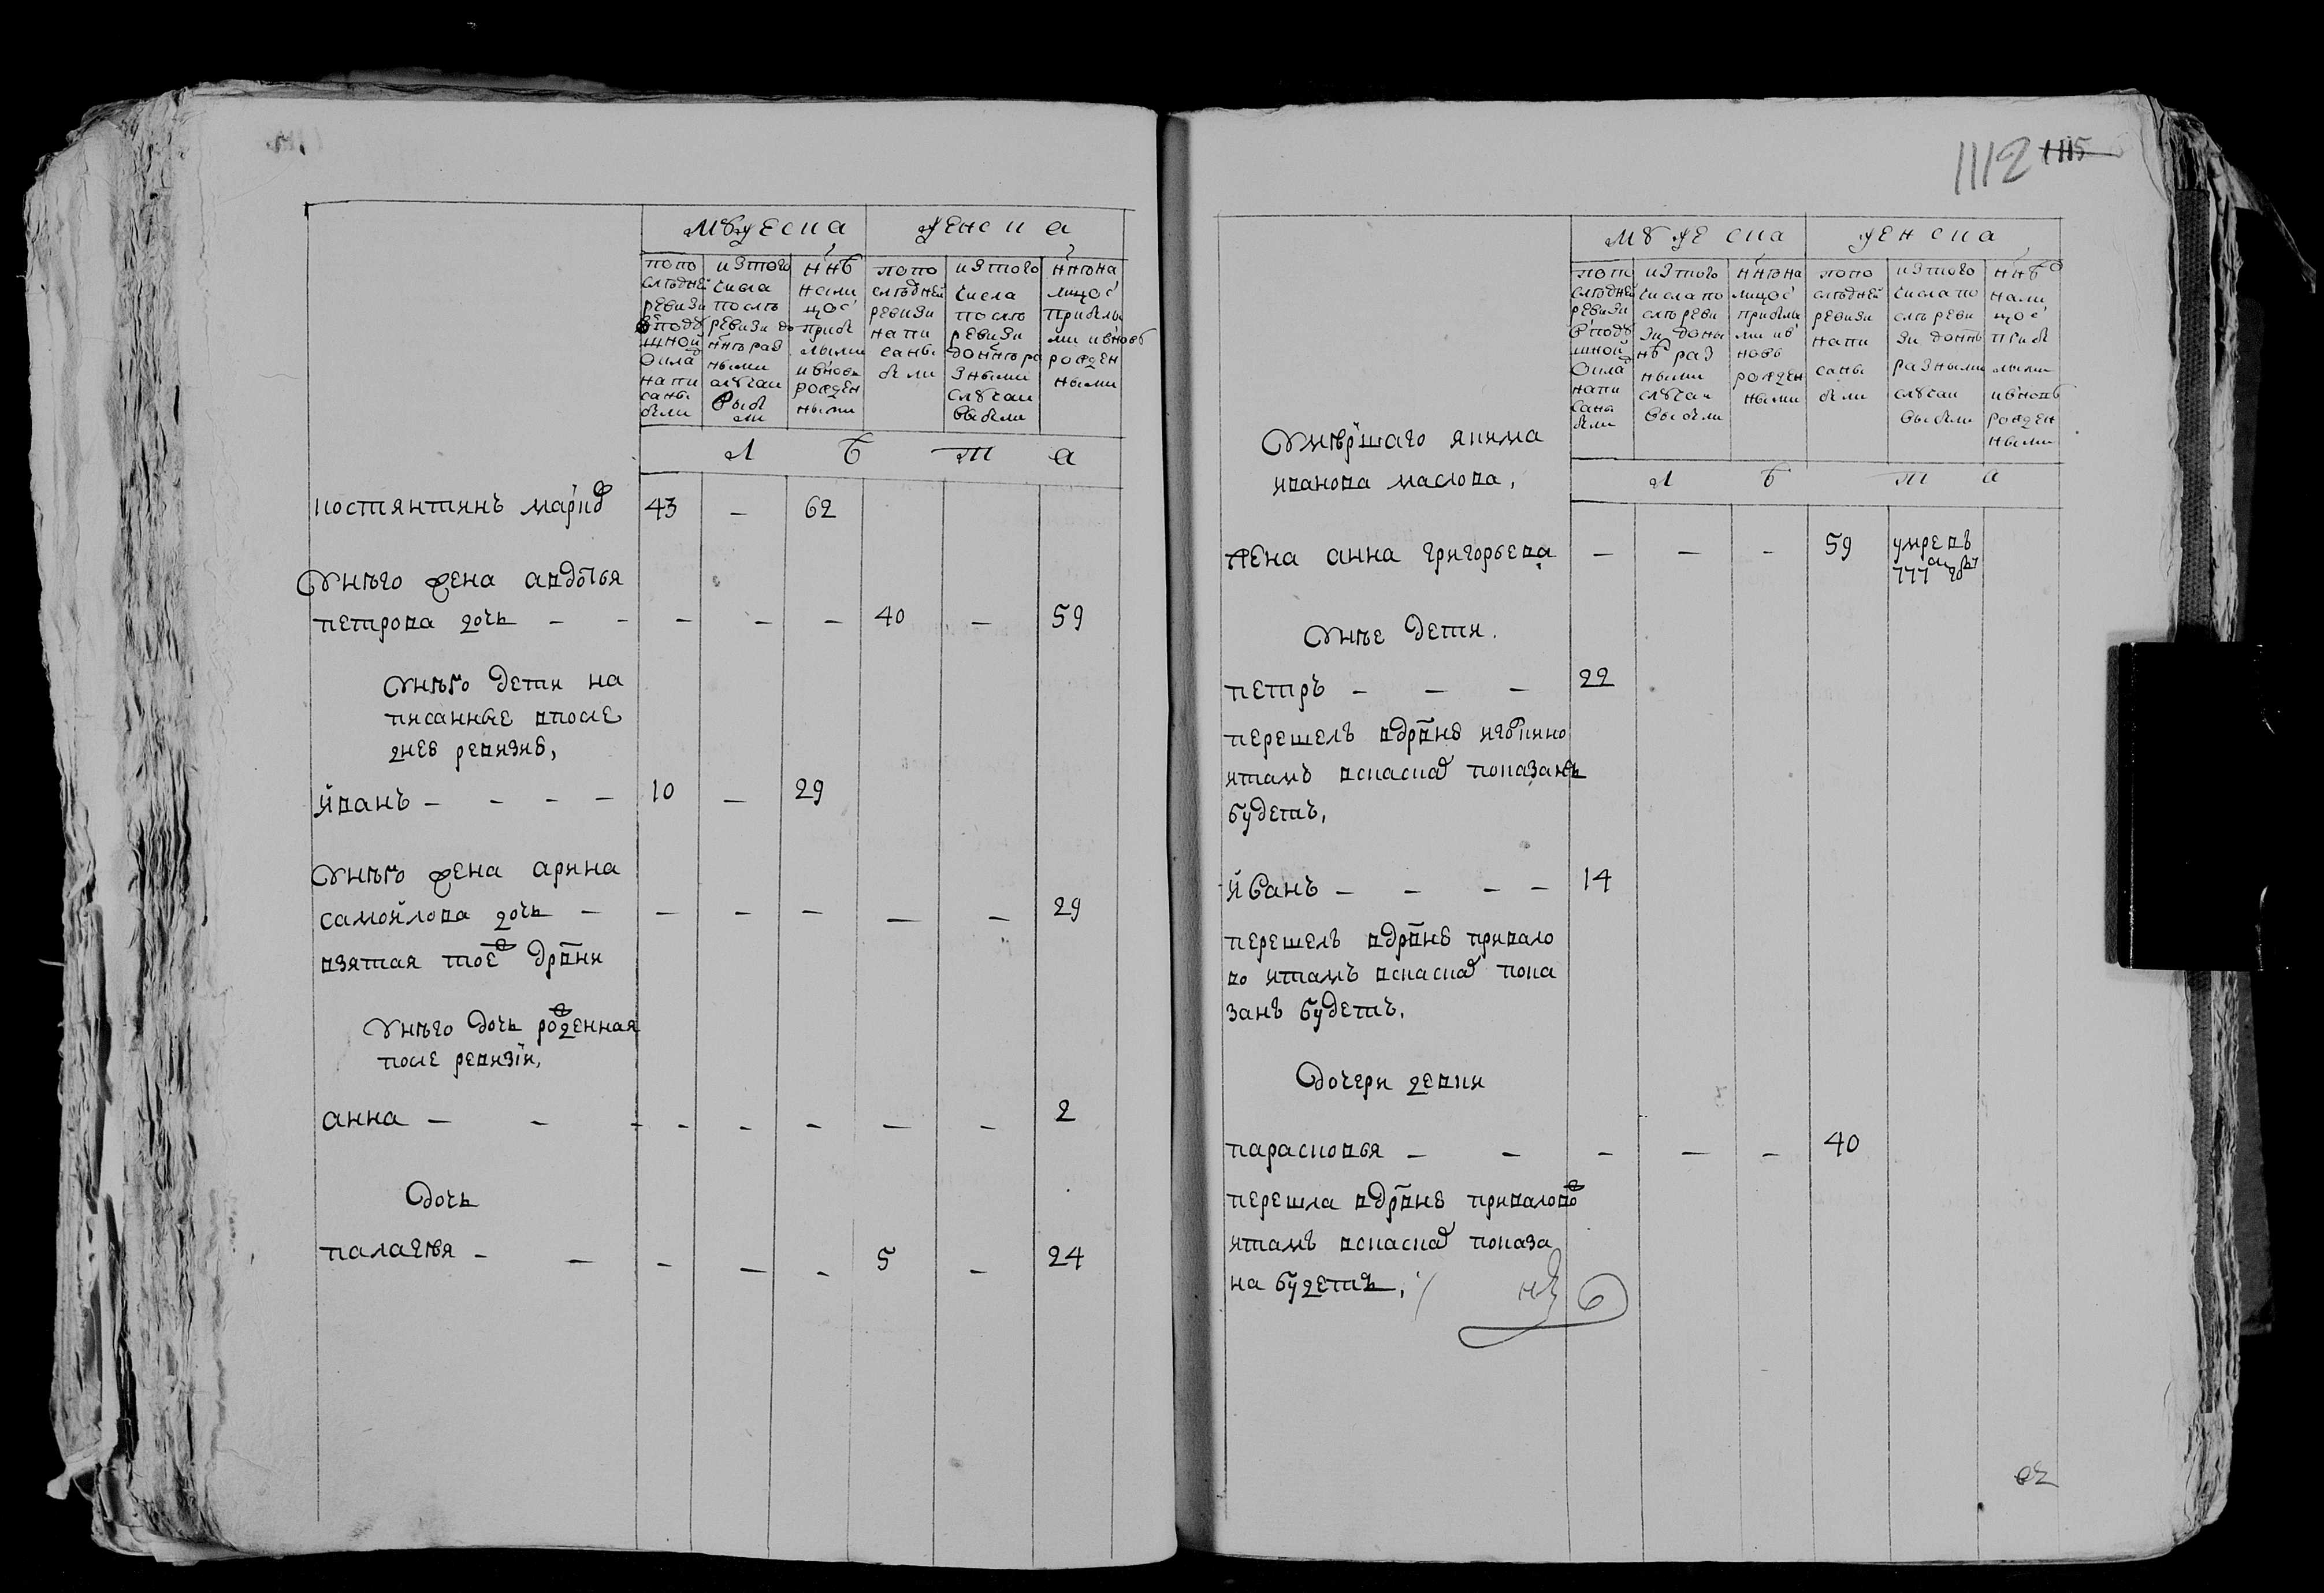 мужеска
женска
попо
следней
ревизи
вподу
шной
окла
напи
саны
были
изтого
числа
после
ревизи до
ннѣ раз
ными
случаи
выбы
ли
ннѣ
нали
цос
прибы
лыми
ивновь
рожден
ными
попо
следней
ревизи
напи
саны
были
изтого
числа
после
ревизи
доннѣ ра
зными
случаи
выбыли
ннѣ на
лицос
прибылы
ми ивновь
рожден
ными
л ѣ т а
костянтинъ марко 43 — 62
Унѣго жена авдотья
петрова дочь — — — — — 40 — 59
Унѣго дети на
писанные впосле
днеи ревизие,
иванъ — — — — 10 — 29
Унѣго жена арина
самойлова дочь — — — — — — 29
взятая тоеж дрвни
Унѣго дочь рожденная
после ревизiи,
анна — — — — — — — — 2
Дочь
палагея — — — — — 5 — 24
1112 1115
мужеска
женска
попо
следней
ревизи
вподу
шной
окла
напи
саны
были
изтого
числа по
сле реви
зи доны
нѣ раз
ными
случаи
выбыли
ннѣ на
лицос
прибылы
ми ив
новь
рожден
ными
попо
следней
ревизи
напи
саны
были
изтого
числа по
сле реви
зи доннѣ
разными
случаи
выбыли
ннѣ
нали
цос
прибы
лыми
ивновь
рожден
ными
л ѣ т а
Умѣршаго якима
иванова маслова,
жена анна григорьева — — — 59 умре въ
777м году
Унѣе дети.
петръ — — — 22
перешелъ вдрвню
итамъ вскаску показанъ
будетъ,
иванъ — — — — 14
перешелъ вдрвню привало
во итамъ вскаску пока
занъ будетъ.
Дочери девки
парасковья — — — — — 40
перешла вдрвню привалово
итамъ вскаску показа
на будетъ,